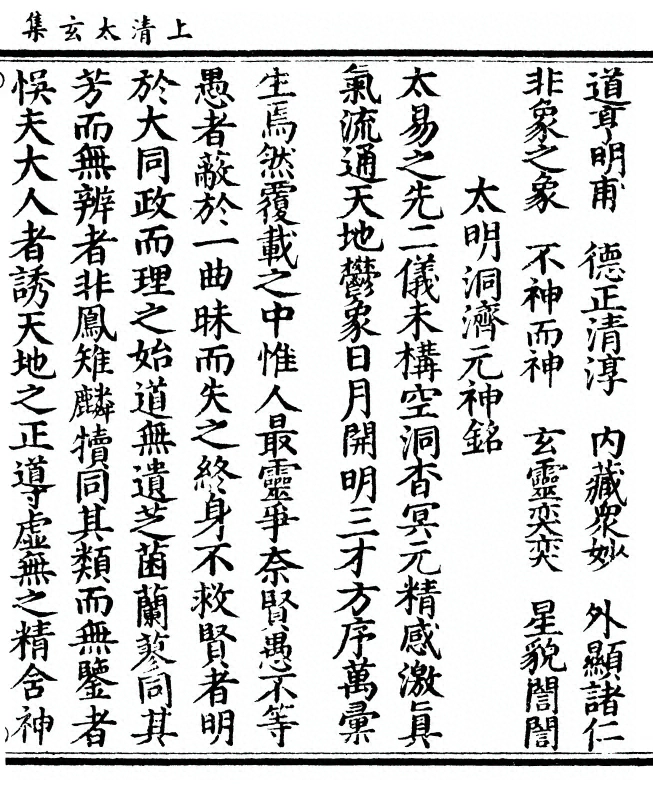 上清太玄集
道亨明甫　德正清淳　內藏眾妙　外顯諸仁
非象之象　不神而神　玄靈奕奕　星貌誾誾
太明洞濟元神銘
太易之先二儀未構空洞杳冥元精感激眞
氣流通天地鬱象日月開明三才方序萬彙
生焉然覆載之中惟人最靈爭奈賢愚不等
愚者蔽於一曲昧而失之終身不救賢者明
於大同政而理之始道無遺芝菌蘭蔘同其
芳而無辨者非鳳雉麟犢同其類而無鑒者
悞夫大人者誘天地之正導虛無之精含神